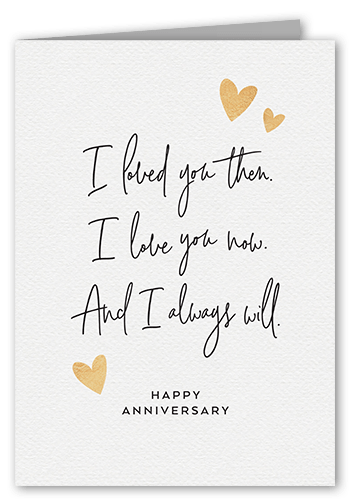 I loved you then.
I love you now.
And I always will.
HAPPY
ANNIVERSARY